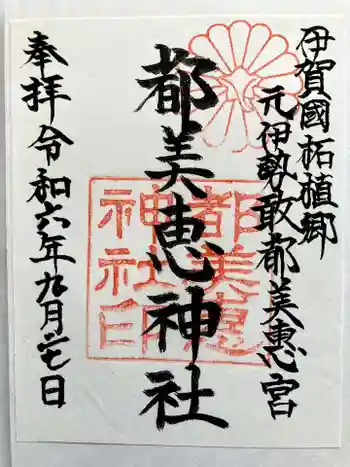 伊賀國柘植郷
元伊勢敢都美恵宮
都美恵神社
都美恵神社印
奉拝令和六年九月二七日